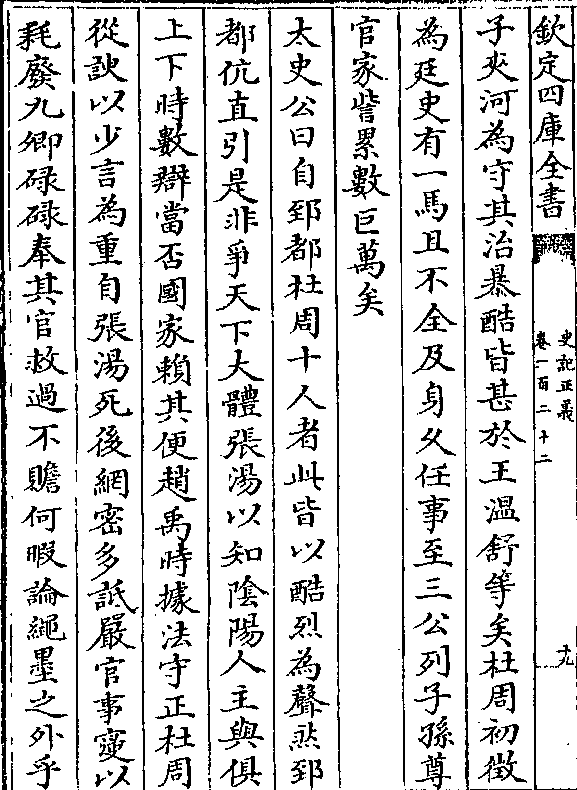 欽定四庫全書
史記正義
卷一百二十二
十九
子夾河為守其治暴酷皆甚於王溫舒等矣杜周初徵
為廷史有一馬且不全及身久任事至三公列子孫尊
官家訾累數巨萬矣
太史公曰自郅都杜周十人者此皆以酷烈為聲然郅
都伉直引是非爭天下大體張湯以知陰陽人主與俱
上下時數辯當否國家賴其便趙禹時據法守正杜周
從諛以少言為重自張湯死後網密多詆嚴官事寖以
耗廢九卿碌碌奉其官救過不贍何暇論繩墨之外乎